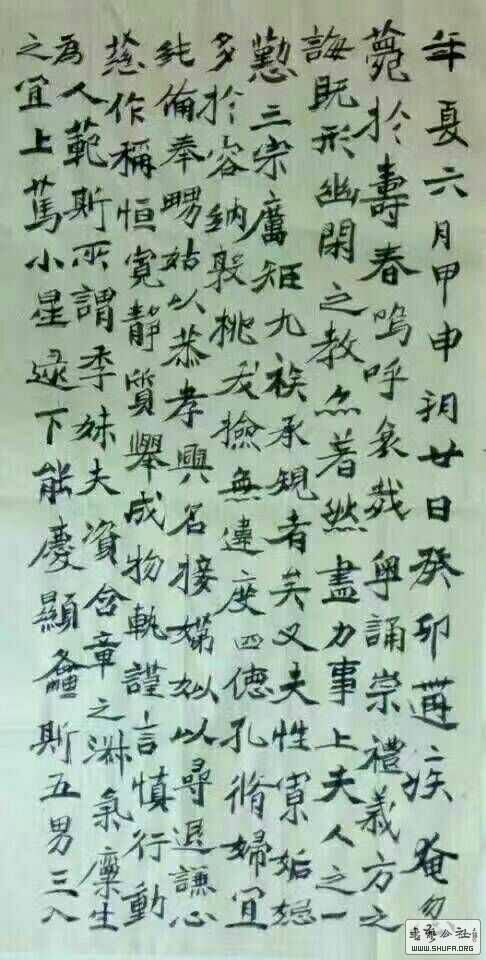 年夏六月甲申朔廿日癸卯遘疾奄忽
薨於壽春嗚呼哀哉粤誦崇禮義方之
誨既形幽閑之教亦著然盡力事上夫人之一
懃三宗厲矩九祾承規者矣又夫性寡妬忌
多於容納敦桃夭撿無違度四德孔脩婦宜
純倫奉甥姑以恭孝興名接娣姒以尋退謙心
慈作稱恒寬靜質舉成物軌謹言慎行動
為人範斯所謂季妹夫資含章之淋氣稟生
之宜上篤小星逮下能慶顯螽斯五男三入
書藝公社
WWW.SHUFA.ORG